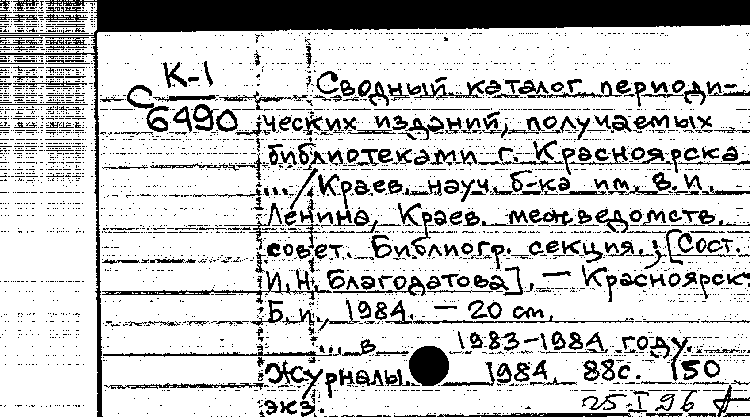 К-1
С
6490
Сводный каталог периоди-
ческих изданий, получаемых
библиотеками г. Красноярска
... / Краев. науч. б-ка им. В.И.
Ленина, Краев. межведомств.
совет. Библиогр. секция.; [Сост.
И.Н. Благодатова]. — Красноярск:
Б.и., 1984. — 20 см.
... в 1983-1984 году.
Журналы. 1984. 88с. 150
экз. 25.I.96